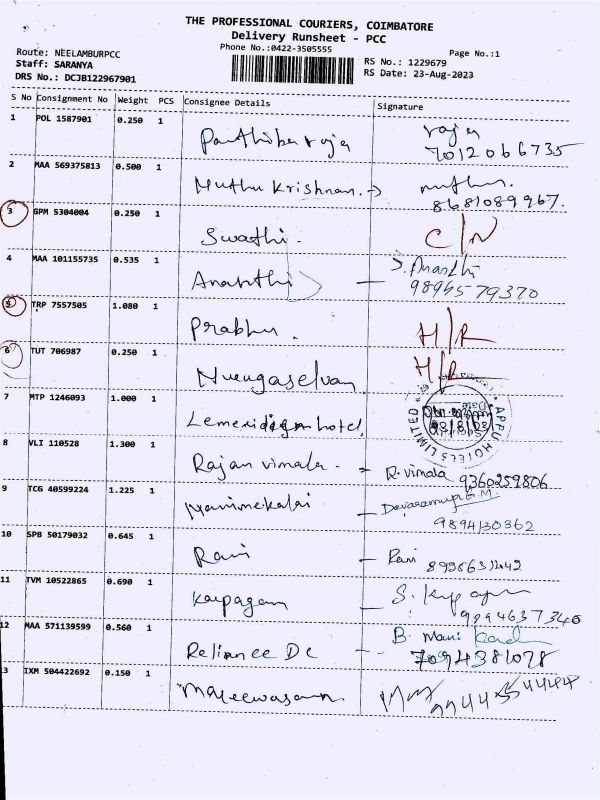 THE PROFESSIONAL COURIERS, COIMBATORE
Delivery Runsheet - PCC
Phone No.:0422-3505555
Page No.:1
Route: NEELAMBURPCC
Staff: SARANYA
DRS No.: DCJB122967901
RS No.: 1229679
RS Date: 23-Aug-2023
S No Consignment No Weight PCS Consignee Details Signature
1 POL 1587901 0.250 1 Parthiba raja raja
7012066735
2 MAA 569375813 0.500 1 Muthu Krishnan. → muthu.
8681089967.
3 GPM 5304004 0.250 1 Swathi. C/N
4 MAA 101155735 0.535 1 Ananthi — S. Ananthi
9894579370
5 TRP 7557505 1.080 1 Prabhu. H/R
6 TUT 706987 0.250 1 H/R
7 MTP 1246093 1.000 1 Lemeridian hotel APPU HOTELS LIMITED
8 VLI 110528 1.300 1 Rajan vimala - R. vimala 9360259806
9 TCG 40599224 1.225 1 Manimekalai —
9894130362
10 SPB 50179032 0.645 1 Ravi — Ravi
11 TVM 10522865 0.690 1 Karpagam — S.
9894637340
12 MAA 571139599 0.560 1 Reliance Dc — B. Mani
7094381078
13 IXM 504422692 0.150 1